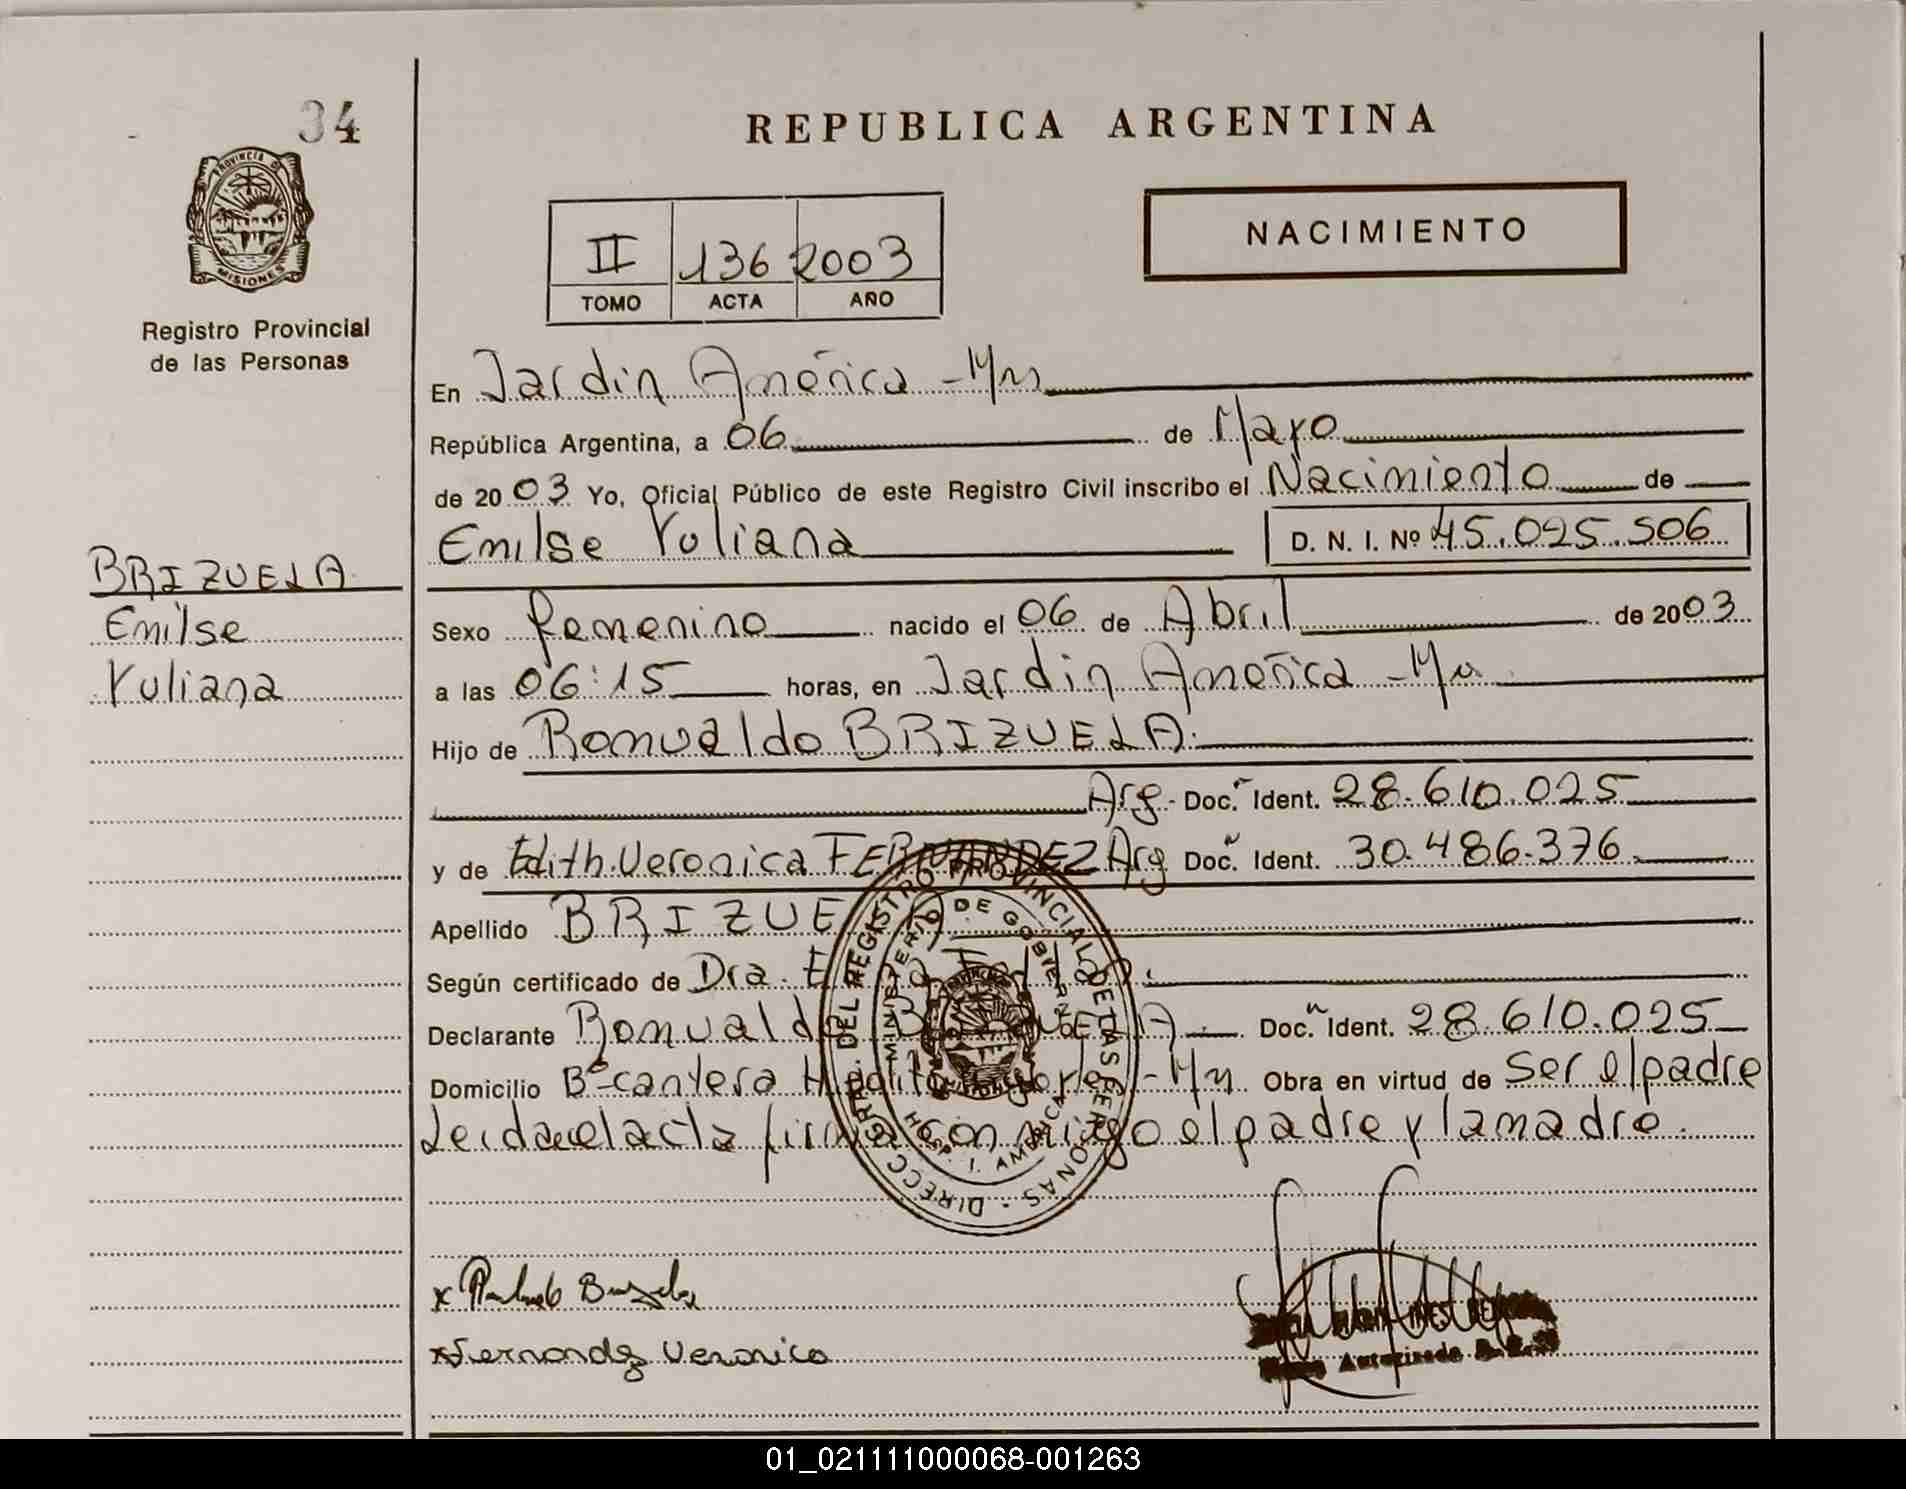 34
REPUBLICA ARGENTINA
PROVINCIA DE
MISIONES
Registro Provincial
de las Personas
II 136 2003
TOMO ACTA AÑO
NACIMIENTO
En Jardin América - Mns
República Argentina, a 06 de Mayo
de 2003 Yo, Oficial Público de este Registro Civil inscribo el Nacimiento de
Emilse Yuliana D. N. I. Nº 45.025.506
BRIZUELA
Emilse
Yuliana
Sexo femenino nacido el 06 de Abril de 2003
a las 06:15 horas, en Jardin América - Mn
Hijo de Romualdo BRIZUELA.
Arg. Doc. Ident. 28.610.025
y de Edith Veronica FERNANDEZ Arg Doc. Ident. 30.486.376
Apellido BRIZUELA
Según certificado de Dra.
Declarante Romualdo BRIZUELA Doc. Ident. 28.610.025
Domicilio Bº-cantera Hipolito - Mn Obra en virtud de ser el padre
Leida el acta firman conmigo el padre y la madre.
DIRECC. GRAL. DEL REGISTRO PROVINCIAL DE LAS PERSONAS
MINISTERIO DE GOBIERNO
x Brizuela
x Fernandez Veronica
Autorizada
01_021111000068-001263